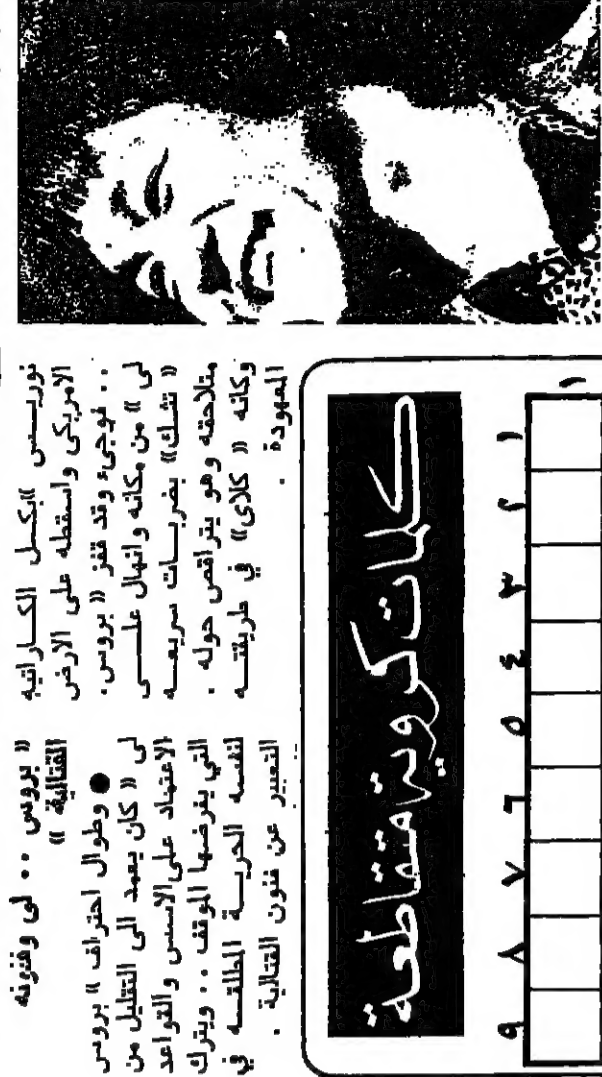 « بروس .. لى وفنونه
القتالية »
● وطوال احتراف »بروس
لى « كان يعمد الى التقليل من
الاعتماد على الاسس والقواعد
التي يفرضها الموقف .. ويترك
لنفسه الحريـة المطلقـه في
التعبير عن فنون القتالية .
نوريـس »بكـل الكـاراتيه
الامريكى واسقطه على الارض
.. فوجىء وقد قفز « بروس.
لى » من مكانه وانهال علـى
« تشك» بضربـات سريعـه
متلاحقه وهو يتراقص حوله .
وكانه « كلاى» في طريقتـه
المعهودة .
كلمات كروية متقاطعة
١ ٢ ٣ ٤ ٥ ٦ ٧ ٨ ٩
١